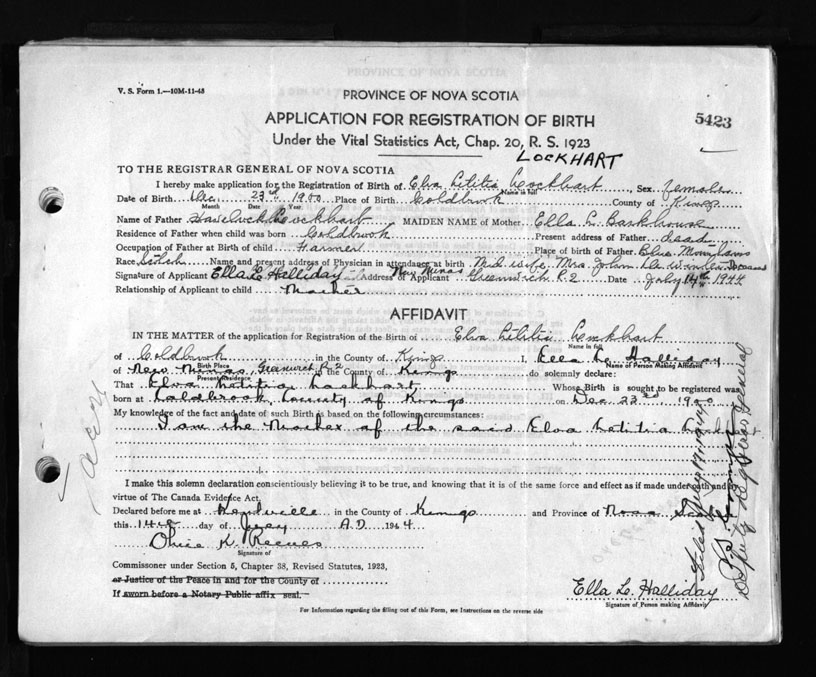 V. S. Form 1.—10M-11-43
PROVINCE OF NOVA SCOTIA
APPLICATION FOR REGISTRATION OF BIRTH
5423
Under the Vital Statistics Act, Chap. 20, R. S. 1923
LOCKHART
TO THE REGISTRAR GENERAL OF NOVA SCOTIA
I hereby make application for the Registration of Birth of Elva Letitia Lockhart, Sex female
Name in full
Date of Birth Dec. 23rd 1900 Place of Birth Coldbrook County of Kings
Month Date Year
Name of Father Havelock Lockhart MAIDEN NAME of Mother Ella L. Barkhouse
Residence of Father when child was born Coldbrook Present address of Father dead
Occupation of Father at Birth of child Farmer Place of birth of Father Blue Mountains
Race Scotch Name and present address of Physician in attendance at birth Midwife, Mrs. John Deceased
Signature of Applicant Ella L Halliday Address of Applicant New Minas Greenwich R.2 Date July 14th 1944
Relationship of Applicant to child Mother
AFFIDAVIT
IN THE MATTER of the application for Registration of the Birth of Elva Letitia Lockhart
Name in full
of Coldbrook in the County of Kings I, Ella L. Halliday
Birth Place Name of Person Making Affidavit
of New Minas, Greenwich R.2 in the County of Kings do solemnly declare:
Present Residence
That Elva Letitia Lockhart Whose Birth is sought to be registered was
born at Coldbrook, County of Kings on Dec 23rd 1900
My knowledge of the fact and date of such Birth is based on the following circumstances:
I am the Mother of the said Elva Letitia Lockhart
I make this solemn declaration conscientiously believing it to be true, and knowing that it is of the same force and effect as if made under oath and by
virtue of The Canada Evidence Act.
Declared before me at Kentville in the County of Kings and Province of Nova Scotia
this 14th day of July A.D. 1944
K. Reeves
Signature of
Commissioner under Section 5, Chapter 38, Revised Statutes, 1923,
or Justice of the Peace in and for the County of
If sworn before a Notary Public affix seal.
Ella L. Halliday
Signature of Person making Affidavit
For Information regarding the filling out of this Form, see Instructions on the reverse side
Filed July 17, 1944